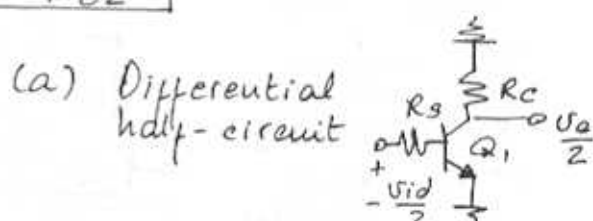 (a) Differential
half-circuit
Rs
Rc
Q1
vo
2
+
- vid
2